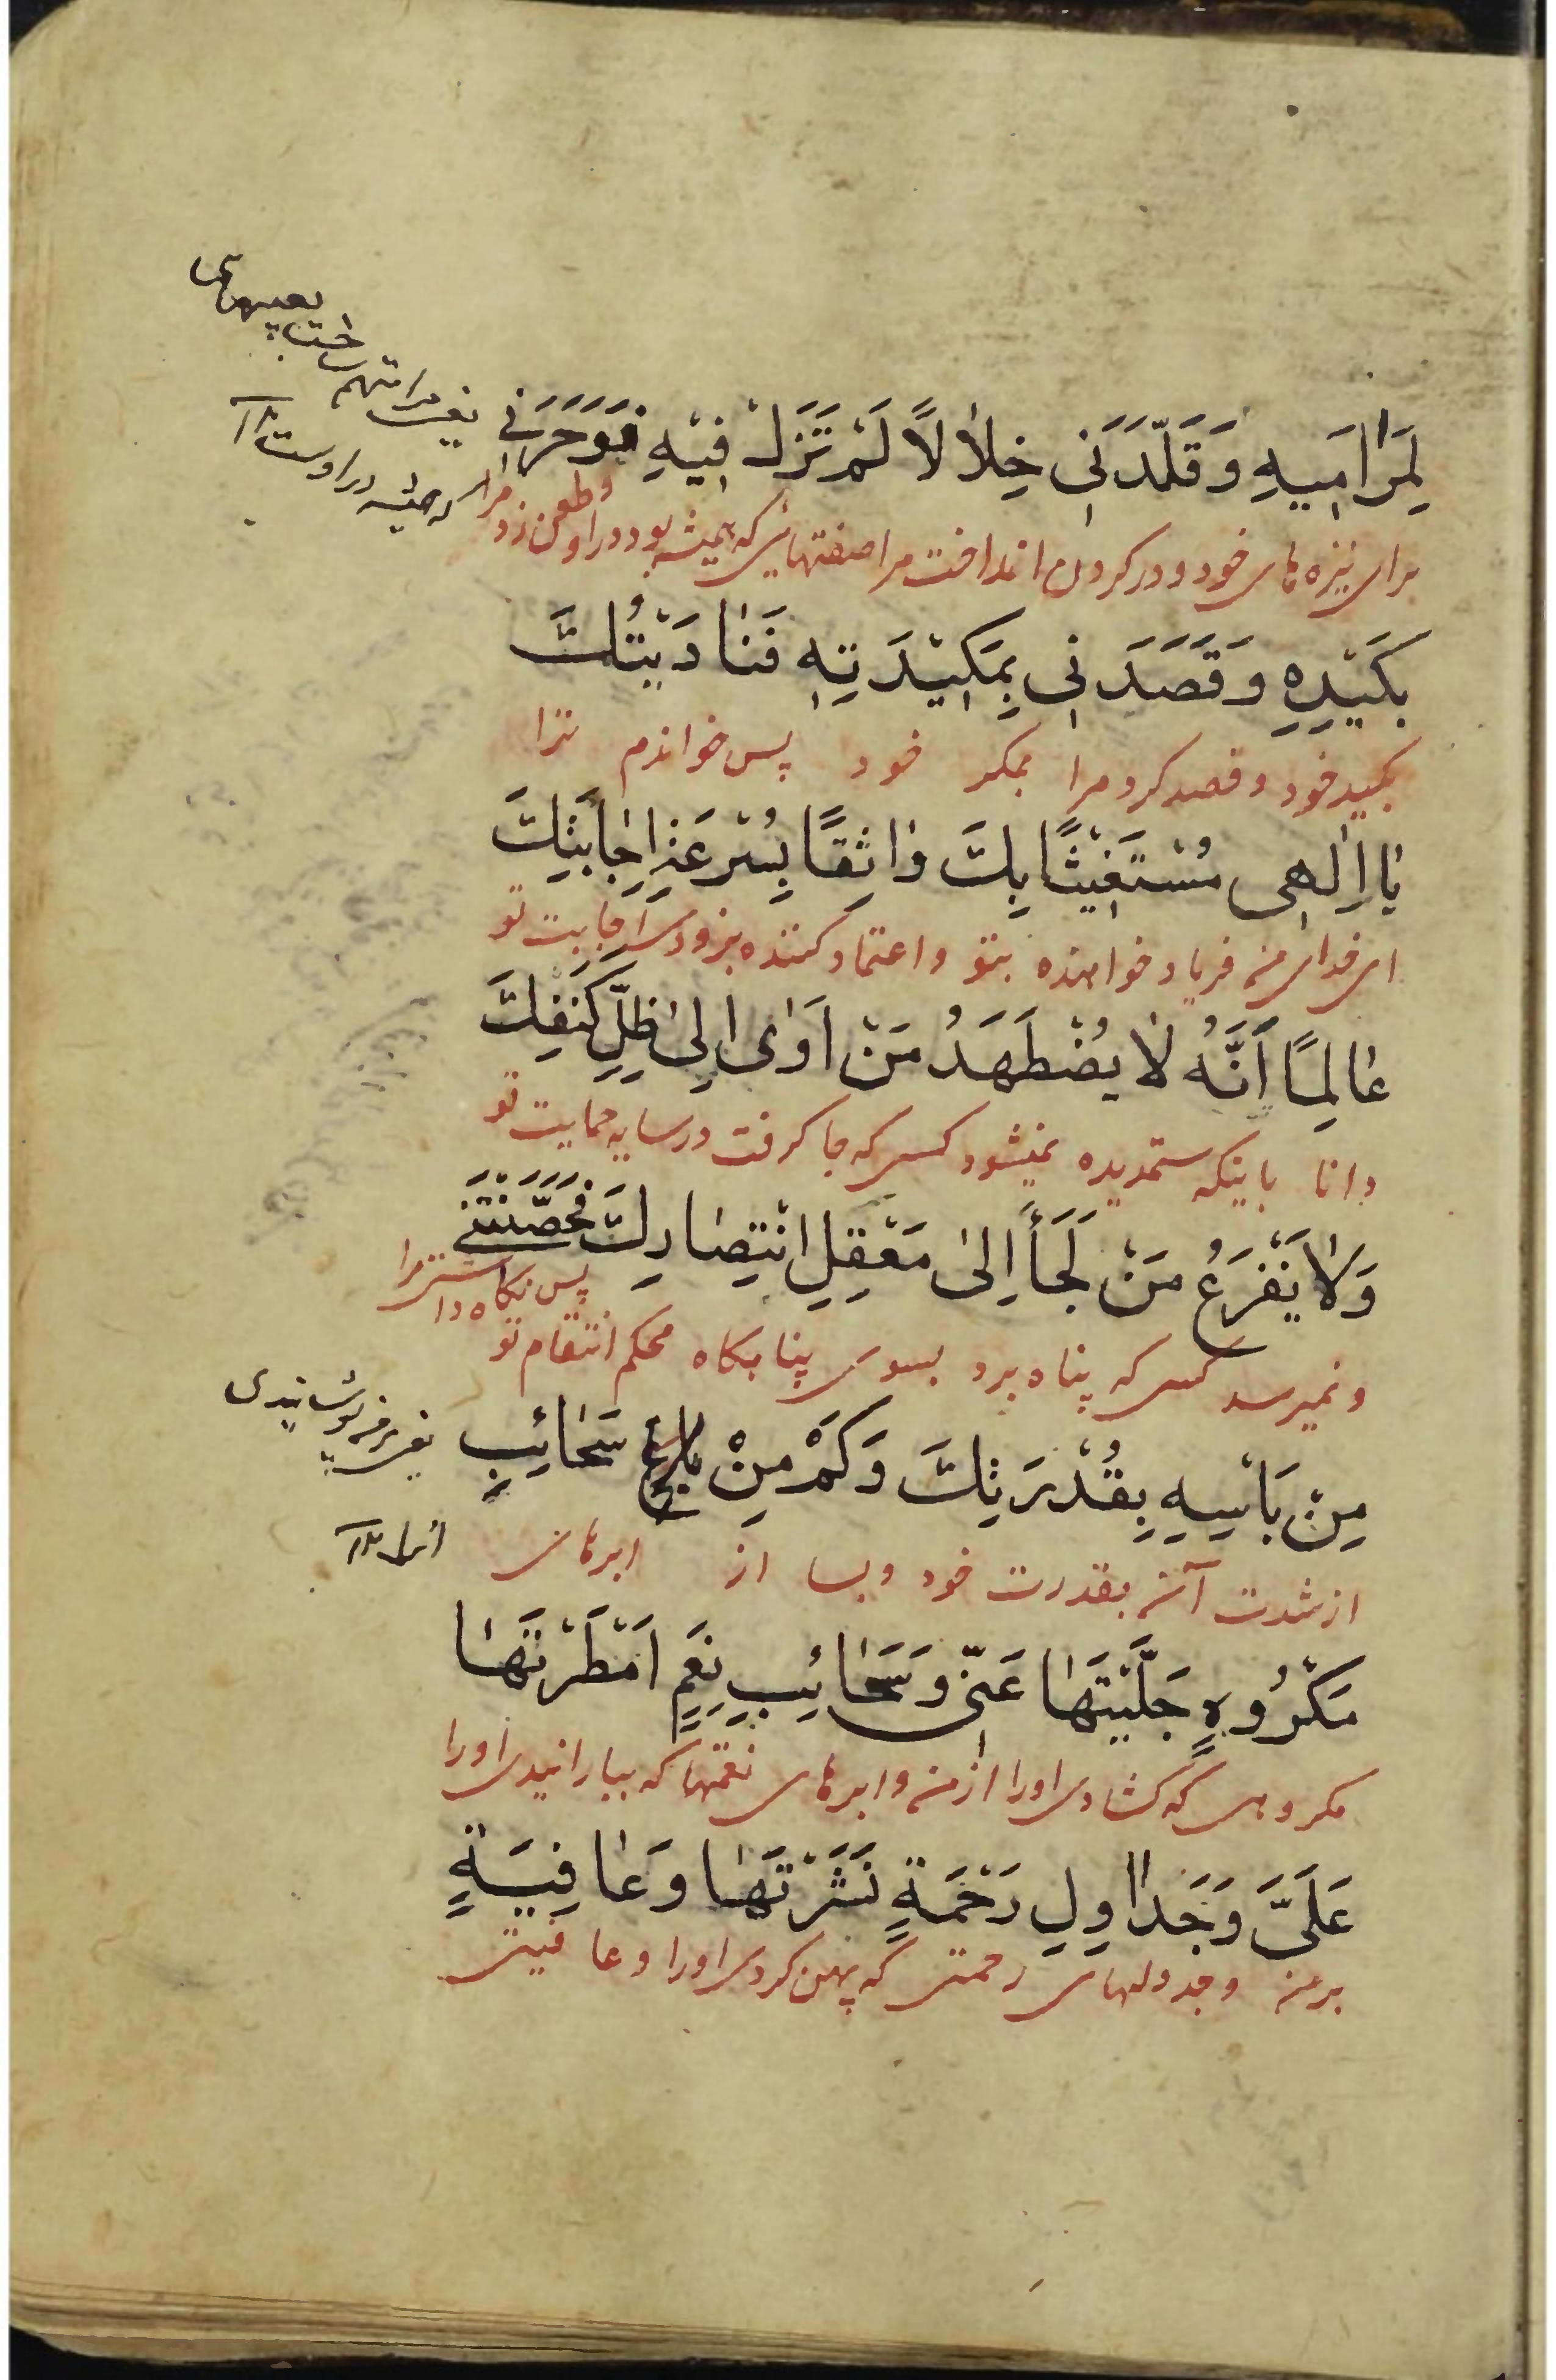 لِمَرَامِيهِ وَقَلَّدَنِي خِلَالًا لَمْ تَزَلْ فِيْهِ وَوَحَرَنِي
برای نیزه های خود و در کردن انداخت مرا صفتهایی که همیشه بود در او وطعن زد مرا
یعنی مرا متهم ساخت بعیبهای
که همیشه در اوست ۱۲
بِكَيْدِهِ وَقَصَدَنِي بِمَكِيْدَتِهِ فَنَادَيْتُكَ
بکید خود و قصد کرد مرا بمکر خود پس خواندم ترا
يَا اِلٰهِي مُسْتَغِيْثًا بِكَ وَاثِقًا بِسُرْعَةِ اِجَابَتِكَ
ای خدای من فریاد خواهنده بتو و اعتماد کننده بزودی اجابت تو
عَالِمًا أَنَّهُ لَا يُضْطَهَدُ مَنْ اَوٰى اِلٰى ظِلِّ كَنَفِكَ
دانا باینکه ستمدیده نمیشود کسی که جا کرفت در سایه حمایت تو
وَلَا يَفْزَعُ مَنْ لَجَأَ اِلٰى مَعْقِلِ انْتِصَارِكَ فَحَصَّنْتَنِي
و نمیرسد کسی که پناه برد بسوی پناهکاه محکم انتقام تو پس نکاه داشتی مرا
مِنْ بَأْسِهِ بِقُدْرَتِكَ وَكَمْ مِنْ سَحَائِبِ
از شدت آن بقدرت خود و بسا از ابرهای
مَكْرُوهٍ جَلَّيْتَهَا عَنِّي وَسَحَائِبِ نِعَمٍ اَمْطَرْتَهَا
مکروهی که کشادی اورا از من و ابرهای نعمتها که ببارانیدی اورا
عَلَيَّ وَجَدَاوِلِ رَحْمَةٍ نَشَرْتَهَا وَعَافِيَةٍ
بر من و جدولهای رحمتی که پهن کردی اورا و عافیتی